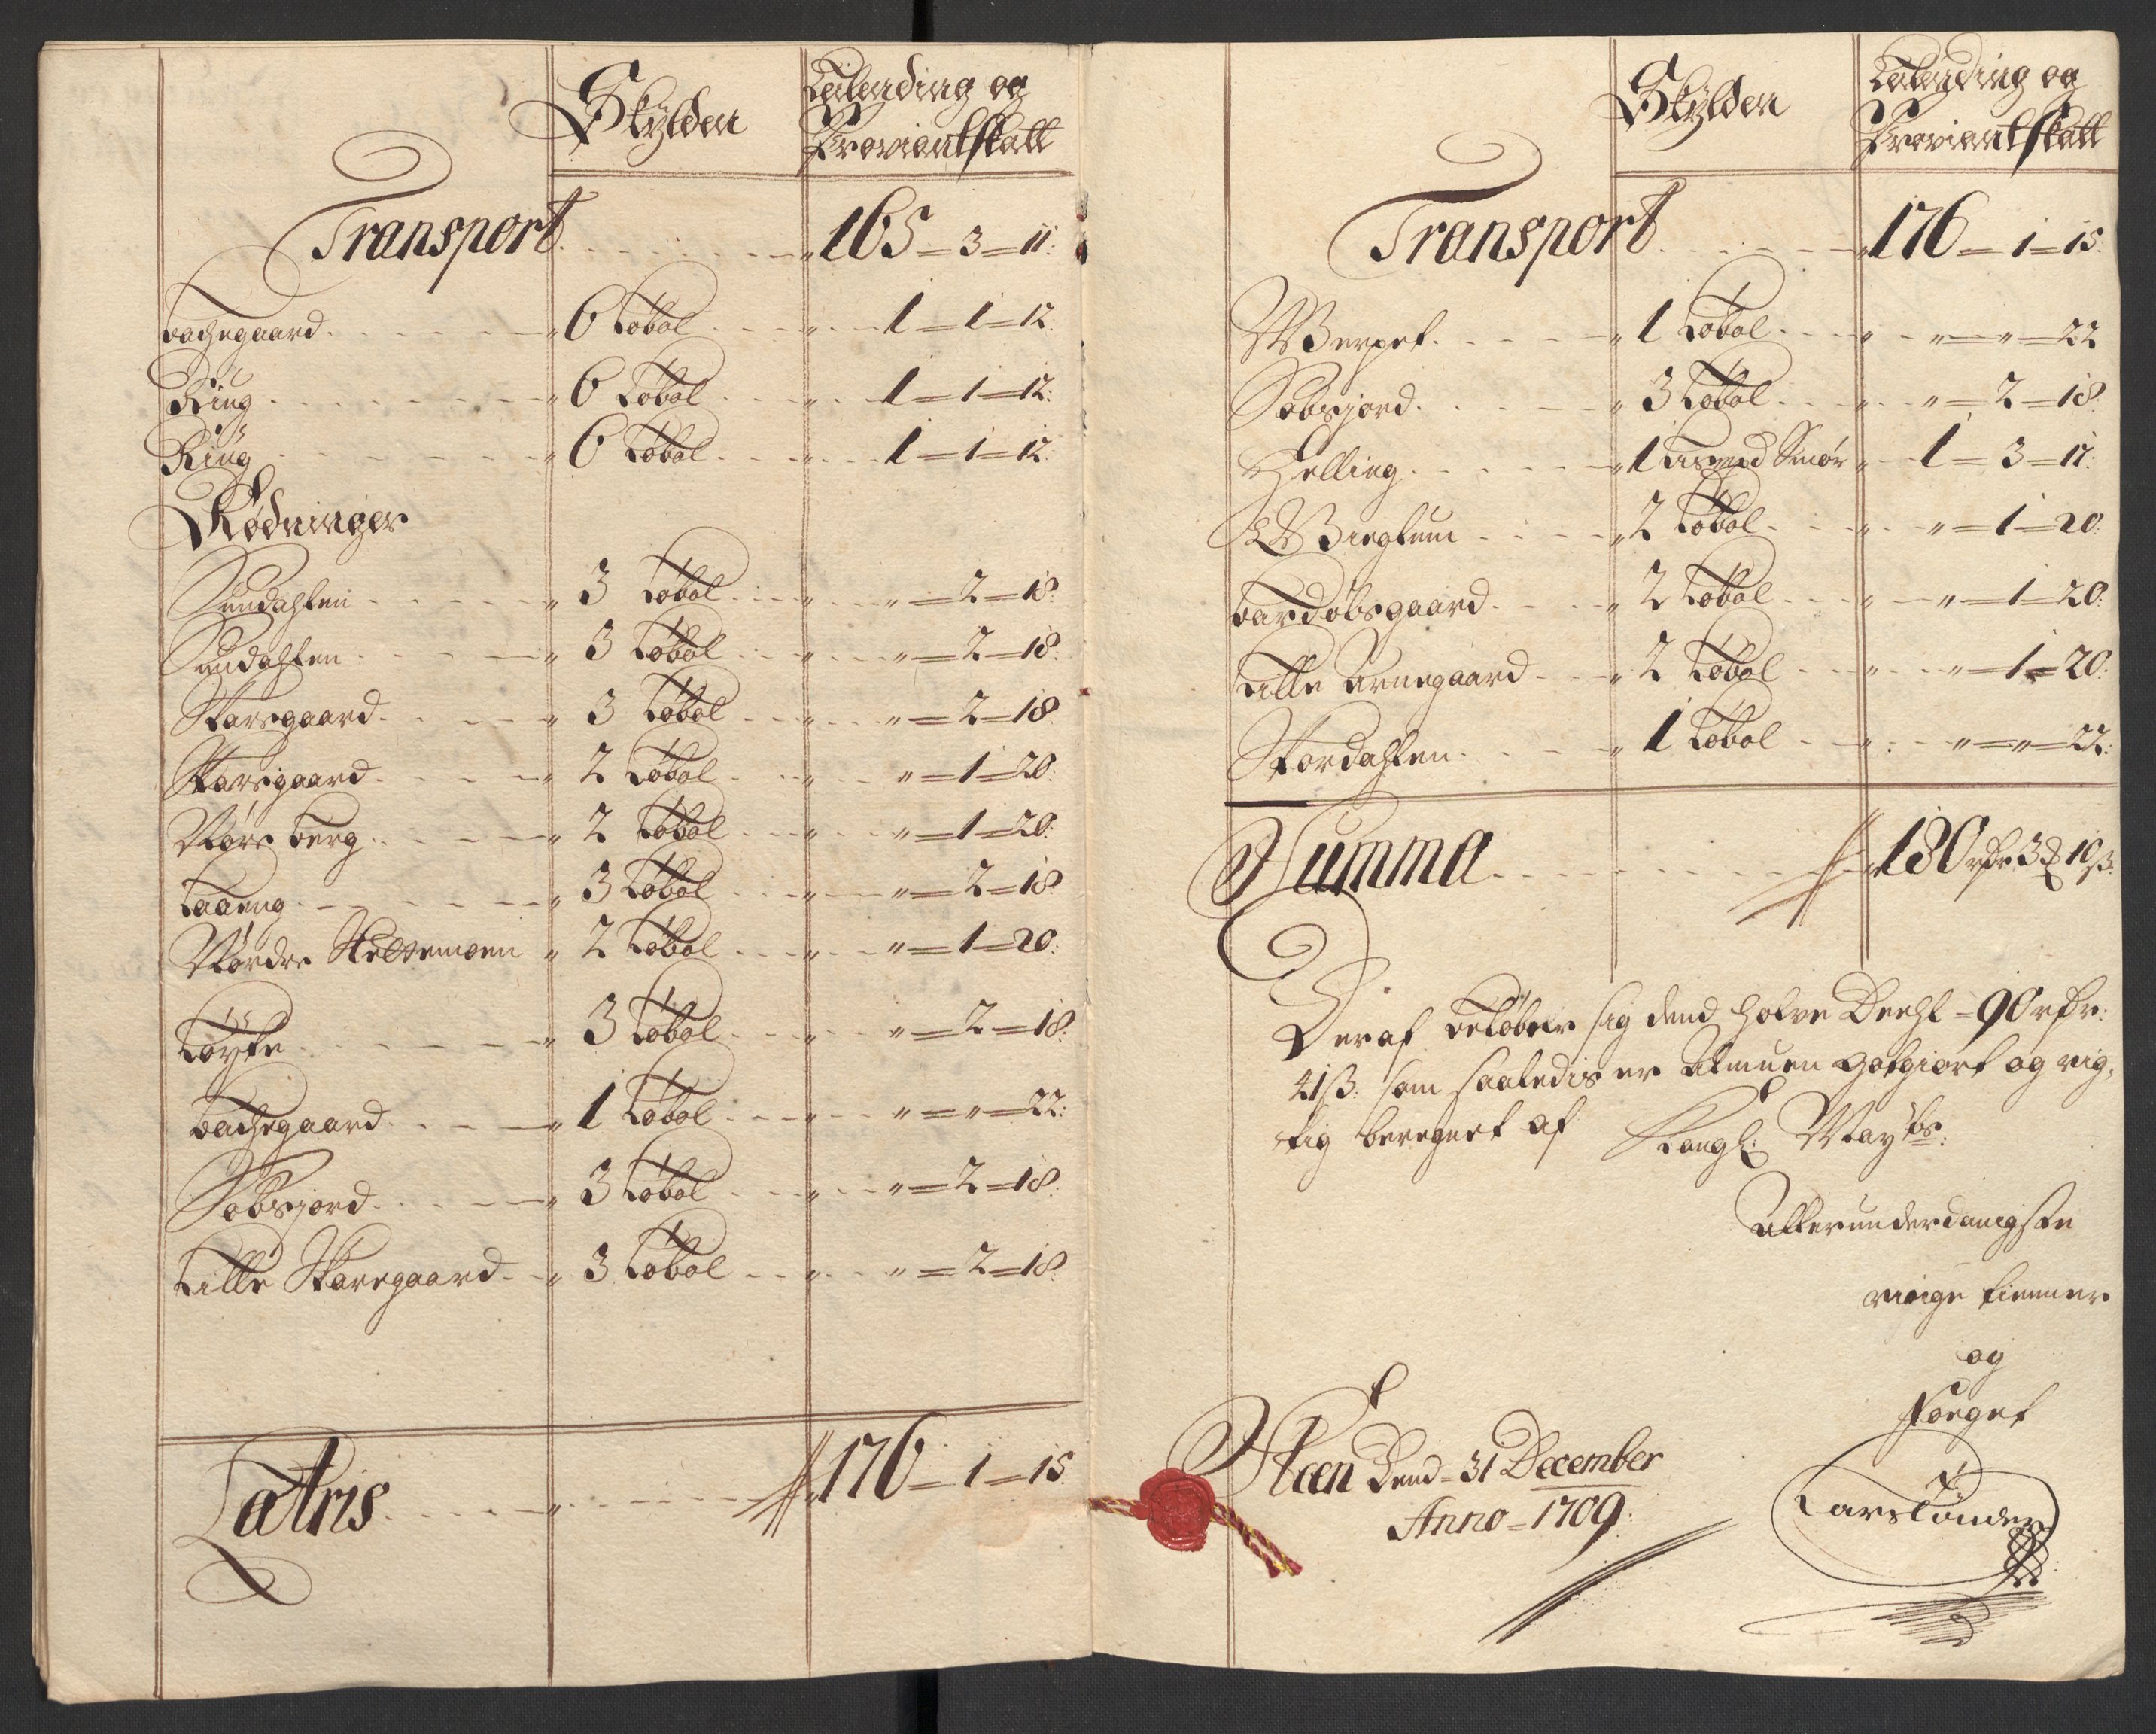 Skylden
Leilending og
Proviantskatt
Transport 165 = 3 = 11:
Bachegaard 6 Løbol 1 = 1 = 12:
Ring 6 Løbol 1 = 1 = 12:
Ring 6 Løbol 1 = 1 = 12:
Rødninger
Sundahlen 3 Løbol " = 2 = 18:
Sundahlen 3 Løbol " = 2 = 18:
Skarsgaard 3 Løbol " = 2 = 18
Skarsgaard 2 Løbol " = 1 = 20:
Nøre Berg 2 Løbol " = 1 = 20:
Laaeng 3 Løbol " = 2 = 18
Nørdre 2 Løbol " = 1 = 20:
Løyte 3 Løbol " = 2 = 18:
Bachegaard 1 Løbol " = " = 22:
Søbsjord 3 Løbol " = 2 = 18:
Lille Skaregaard 3 Løbol " = 2 = 18:
Latris 176 = 1 = 15
Skylden
Leilending og
Proviantskatt
Transport 176 = 1 = 15:
1 Løbol " = " = 22
Søbsjord 3 Løbol " = 2 = 18:
Helling 1 Smør 1 = 3 = 17:
2 Løbol " = 1 = 20:
Bardøbsgaard 2 Løbol " = 1 = 20:
Lille Arnegaard 2 Løbol " = 1 = 20:
Stordahlen 1 Løbol " = " = 22:
Summa 180 rdr 3 ₰ 10 ß:
Deraf beløber sig dend halve Deehl = 90 rdr:
41 ß: som saaledis er Almuen gotgiort og rig,
tig beregnet af Kongl: Mayts:
Allerunderdanigste
tienner
og
Foeget
Steen Dend = 31 December
Anno = 1709:
Lars Tønder